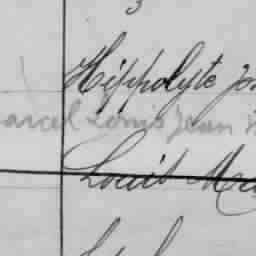 3
Hippolyte Jo
arcel Louis Jean
Louis Ma